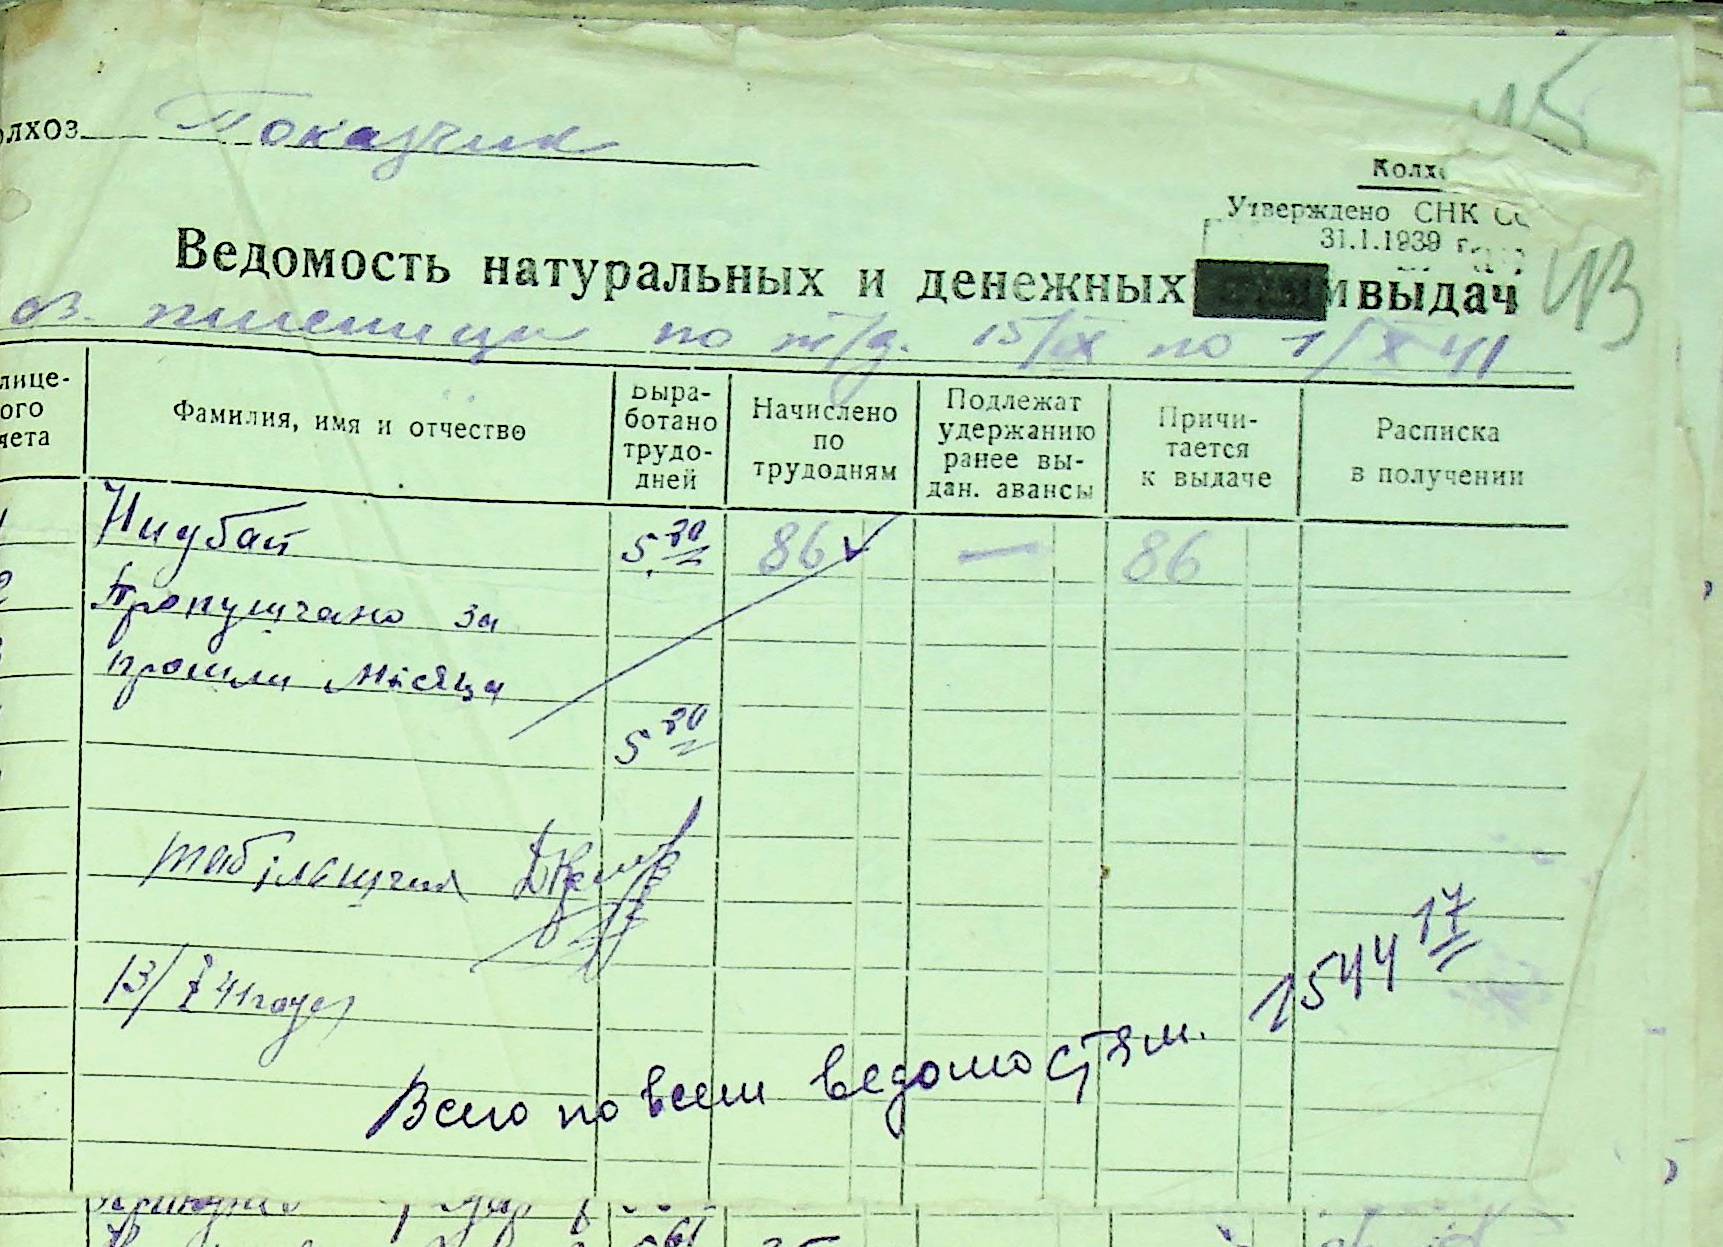 олхоз Показчик
45
Колх
Утверждено СНК СС
31.1.1939 г.
Ведомость натуральных и денежных выдач
43
оз. пшеницы по т/д. 15/IX по 1/X 41
лице-
ого
чета
Фамилия, имя и отчество
Выра-
ботано
трудо-
дней
Начислено
по
трудодням
Подлежат
удержанию
ранее вы-
дан. авансы
Причи-
тается
к выдаче
Расписка
в получении
1 Ниубат 5,20 86 — 86
2 Пропущчано за
прошли місяца
5 20
табільщчик
13/X 41 года
Всего по всем ведомостям. 1544 17